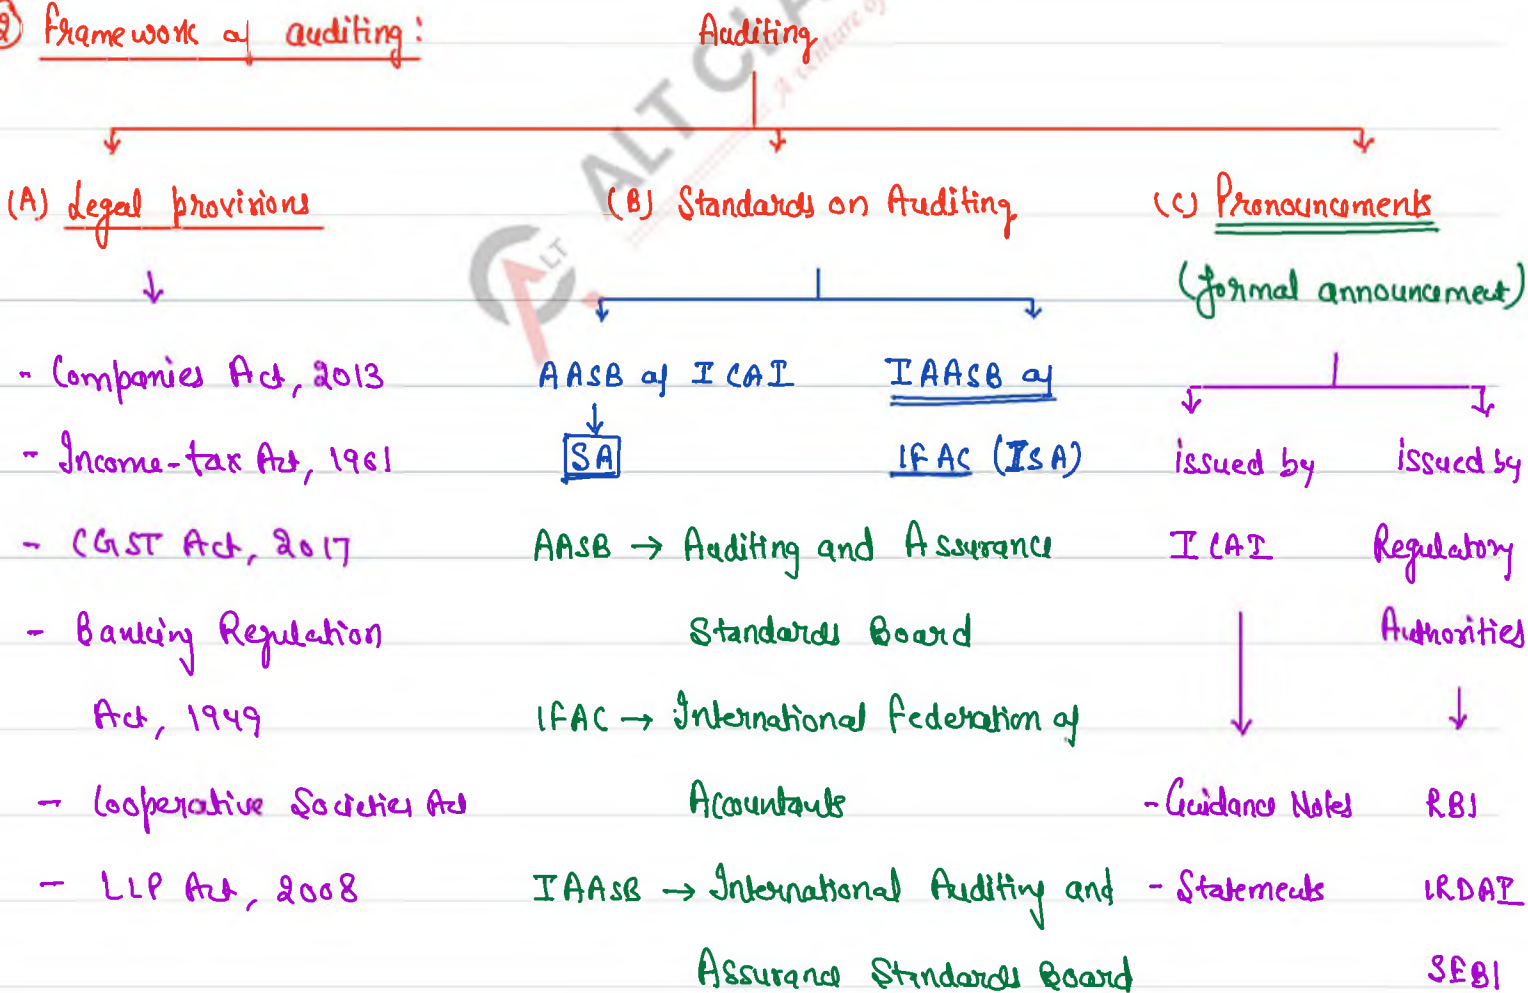 ② Framework of auditing:
Auditing
(A) Legal provisions
- Companies Act, 2013
- Income-tax Act, 1961
- CGST Act, 2017
- Banking Regulation
Act, 1949
- Cooperative Societies Act
- LLP Act, 2008
(B) Standards on Auditing
AASB of ICAI
SA
IAASB of
IFAC (ISA)
AASB → Auditing and Assurance
Standards Board
IFAC → International Federation of
Acountants
IAASB → International Auditing and
Assurance Standards Board
(C) Pronouncements
(formal announcement)
issued by
ICAI
- Guidance Notes
- Statements
issued by
Regulatory
Authorities
RBI
IRDAI
SEBI
ALT CLA
A venture of
ALT